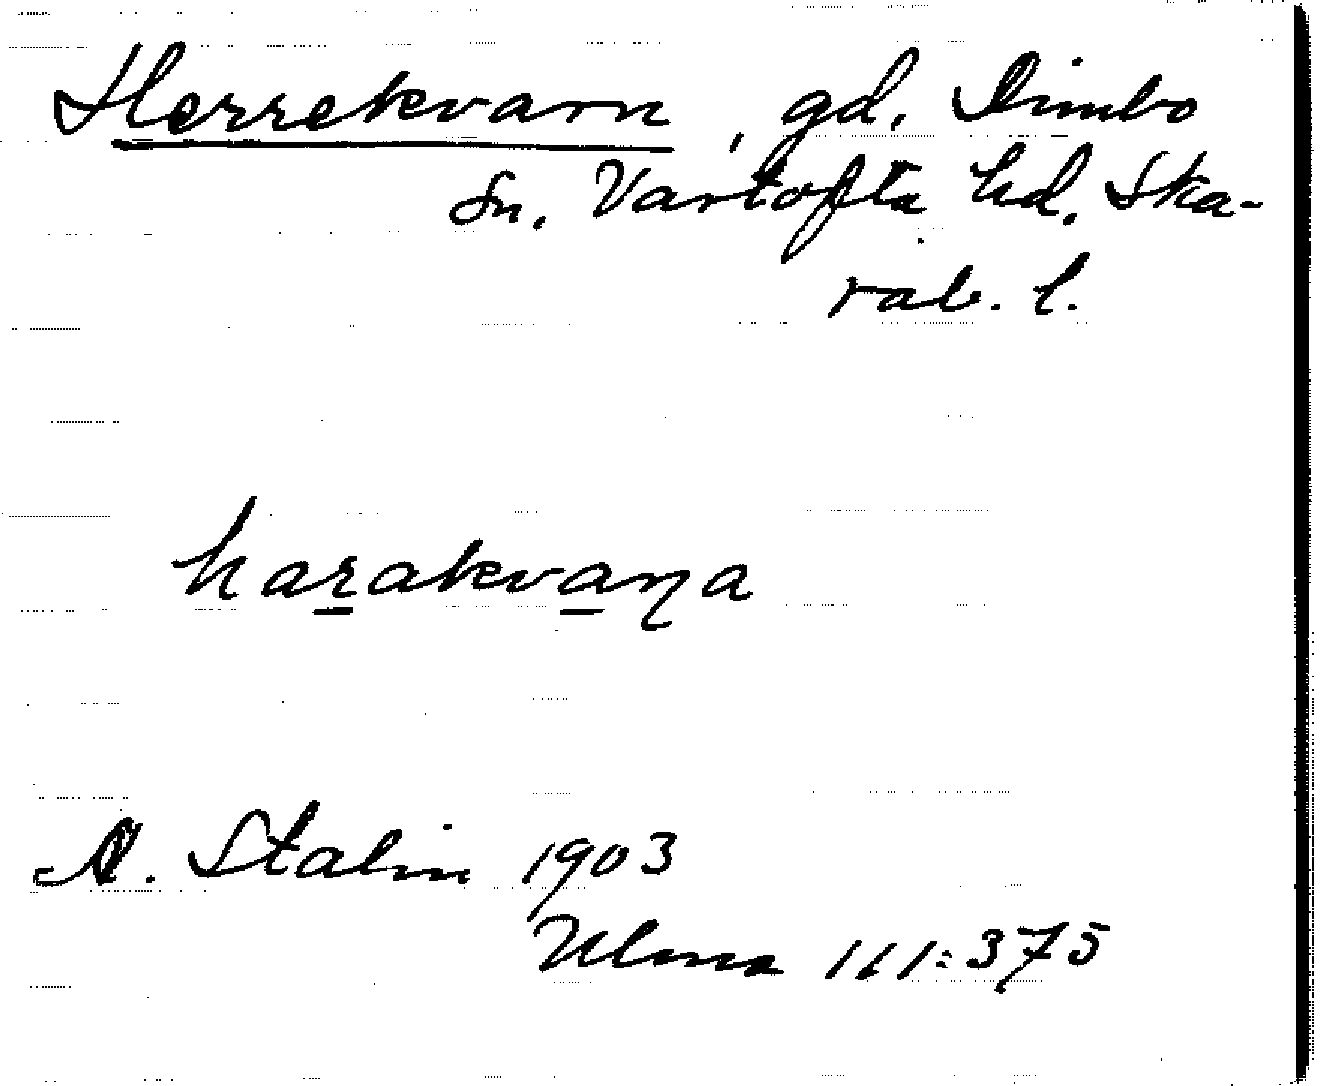 Herrekvarn, gd. Dimbo
sn. Vartofta hd. Ska-
rab. l.
harakvaṇa
A. Stalin 1903
Ulma 111:375